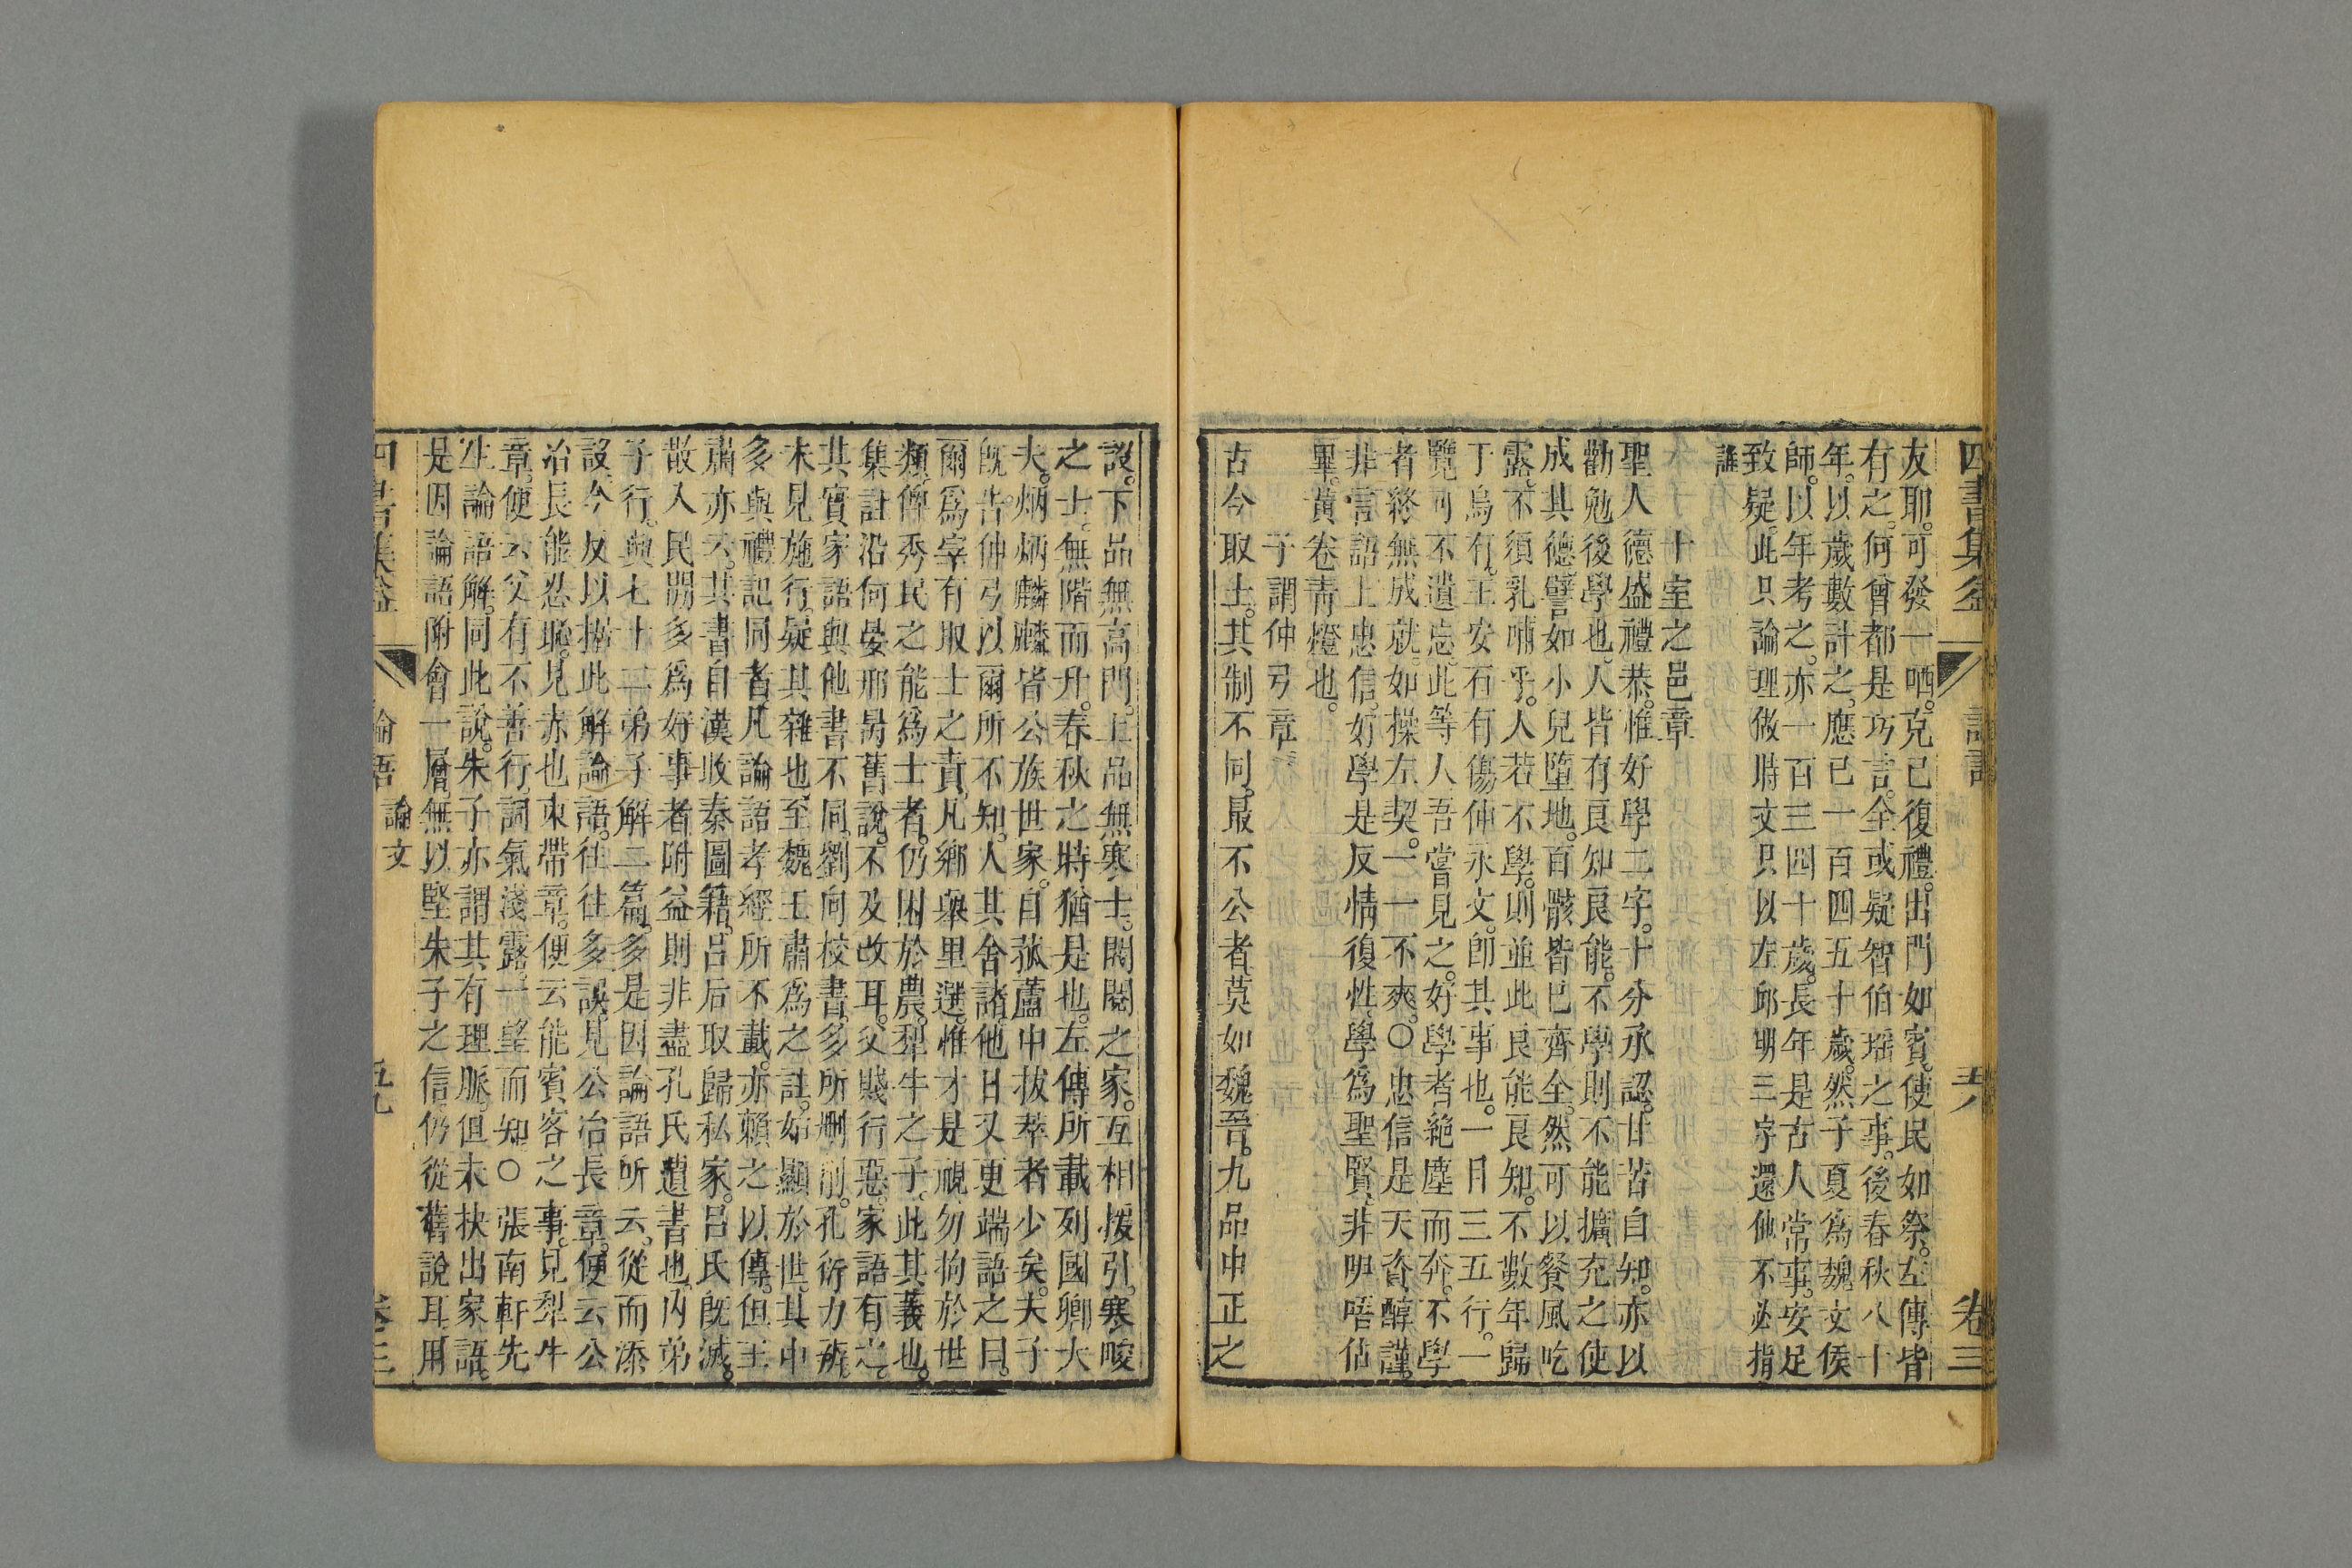 四書集益 卷三
友耶。可發一哂。克已復禮。出門如賓。使民如祭。左傳皆
有之。何曾都是巧言。全或疑智伯瑶之事。後春秋八十
年。以歲數計之。應已一百四五十歲。然子夏爲魏文侯
師。以年考之。亦一百三四十歲。長年是古人常事。安足
致疑。此只論理做時文只以左邱明三字還他不必指
誰
十室之邑章
聖人德盛禮恭。惟好學二字。十分承認。甘苦自知。亦以
勸勉後學也。人皆有良知良能。不學則不能擴充之使
成其德。譬如小兒墮地。百骸皆已齊全。然可以餐風吃
露。不須乳哺乎。人若不學。則並此良能良知。不數年歸
于烏有。王安石有傷仲永文。卽其事也。一目三五行。一
覽可不遺忘。此等人吾嘗見之。好學者絶塵而奔。不學
者終無成就。如操左契。一一不爽。○忠信是天資醇謹。
非言語上忠信。好學是反情復性。學爲聖賢。非呻唔佔
畢。黃卷靑燈。也。
子謂仲弓章
古今取士。其制不同。最不公者莫如魏晉。九品中正之
設。下品無高門。上品無寒士。閥閱之家。互相援引。寒畯
之士。無階而升。春秋之時猶是也。左傳所載列國卿大
夫。炳炳麟麟。皆公族世家。自菰蘆中拔萃者少矣。夫子
旣告仲弓以爾所不知。人其舍諸。他日又更端語之曰。
爾爲宰有取士之責。凡鄉舉里選。惟才是視。勿拘於世
類。儁秀民之能爲士者。仍困於農。犁牛之子。此其義也。
集註沿何晏邢昺舊說。不及改耳。父賤行惡。家語有之。
其實家語與他書不同。劉向校書。多所刪削。孔衍力辨。
未見施行。疑其雜也。至魏王肅爲之註。始顯於世。其中
多與禮記同者。凡論語孝經所不載。亦賴之以傳。但王
肅亦云。其書自漢收秦圖籍。呂后取歸私家。呂氏旣滅。
散入民閒。多爲好事者附益。則非盡孔氏遺書也。內弟
子行。與七十二弟子解二篇。多是因論語所云。從而添
設。今反以據此解論語。往往多誤。見公冶長章。便云公
冶長能忍恥。見赤也束帶章。便云能賓客之事。見犁牛
章。便云父有不善行。詞氣淺露。一望而知。○張南軒先
生論語解。同此說。朱子亦謂其有理脈。但未抉出家語。
是因論語附會一層。無以堅朱子之信。仍從舊說耳。用
四書集益 論語 論文 五九 卷三